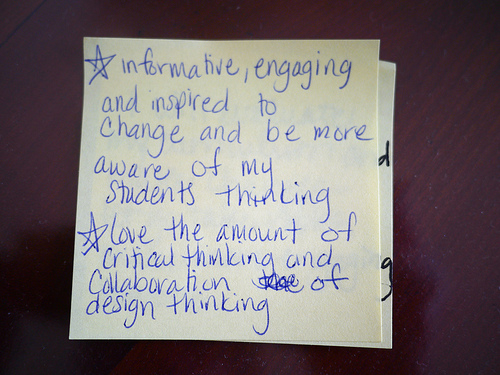 informative, engaging
and inspired to
change and be more
aware of my
students thinking
love the amount of
critical thinking and
Collaboration of
design thinking
d
g